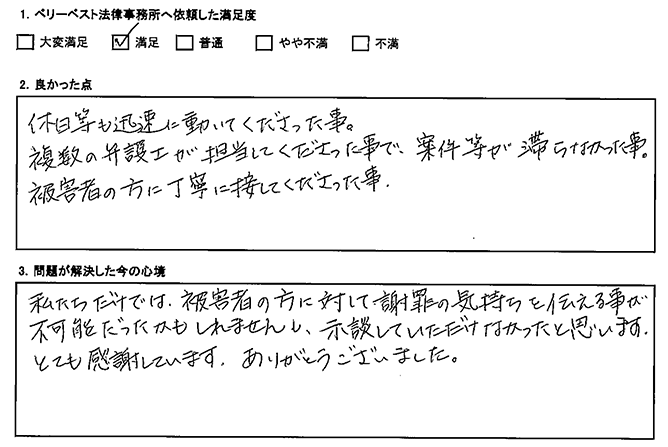 1. ベリーベスト法律事務所へ依頼した満足度
□ 大変満足 ☑ 満足 □ 普通 □ やや不満 □ 不満
2. 良かった点
休日等も迅速に動いてくださった事。
複数の弁護士が担当してくださった事で、案件等が滞らなかった事。
被害者の方に丁寧に接してくださった事.
3. 問題が解決した今の心境
私たちだけでは、被害者の方に対して謝罪の気持ちを伝える事が
不可能だったかもしれませんし、示談していただけなかったと思います.
とても感謝しています. ありがとうございました。